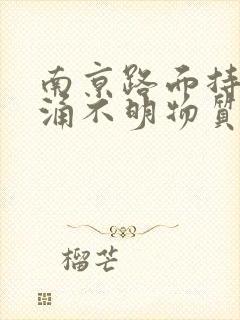 南京路而持
涌不明物质
榴芒